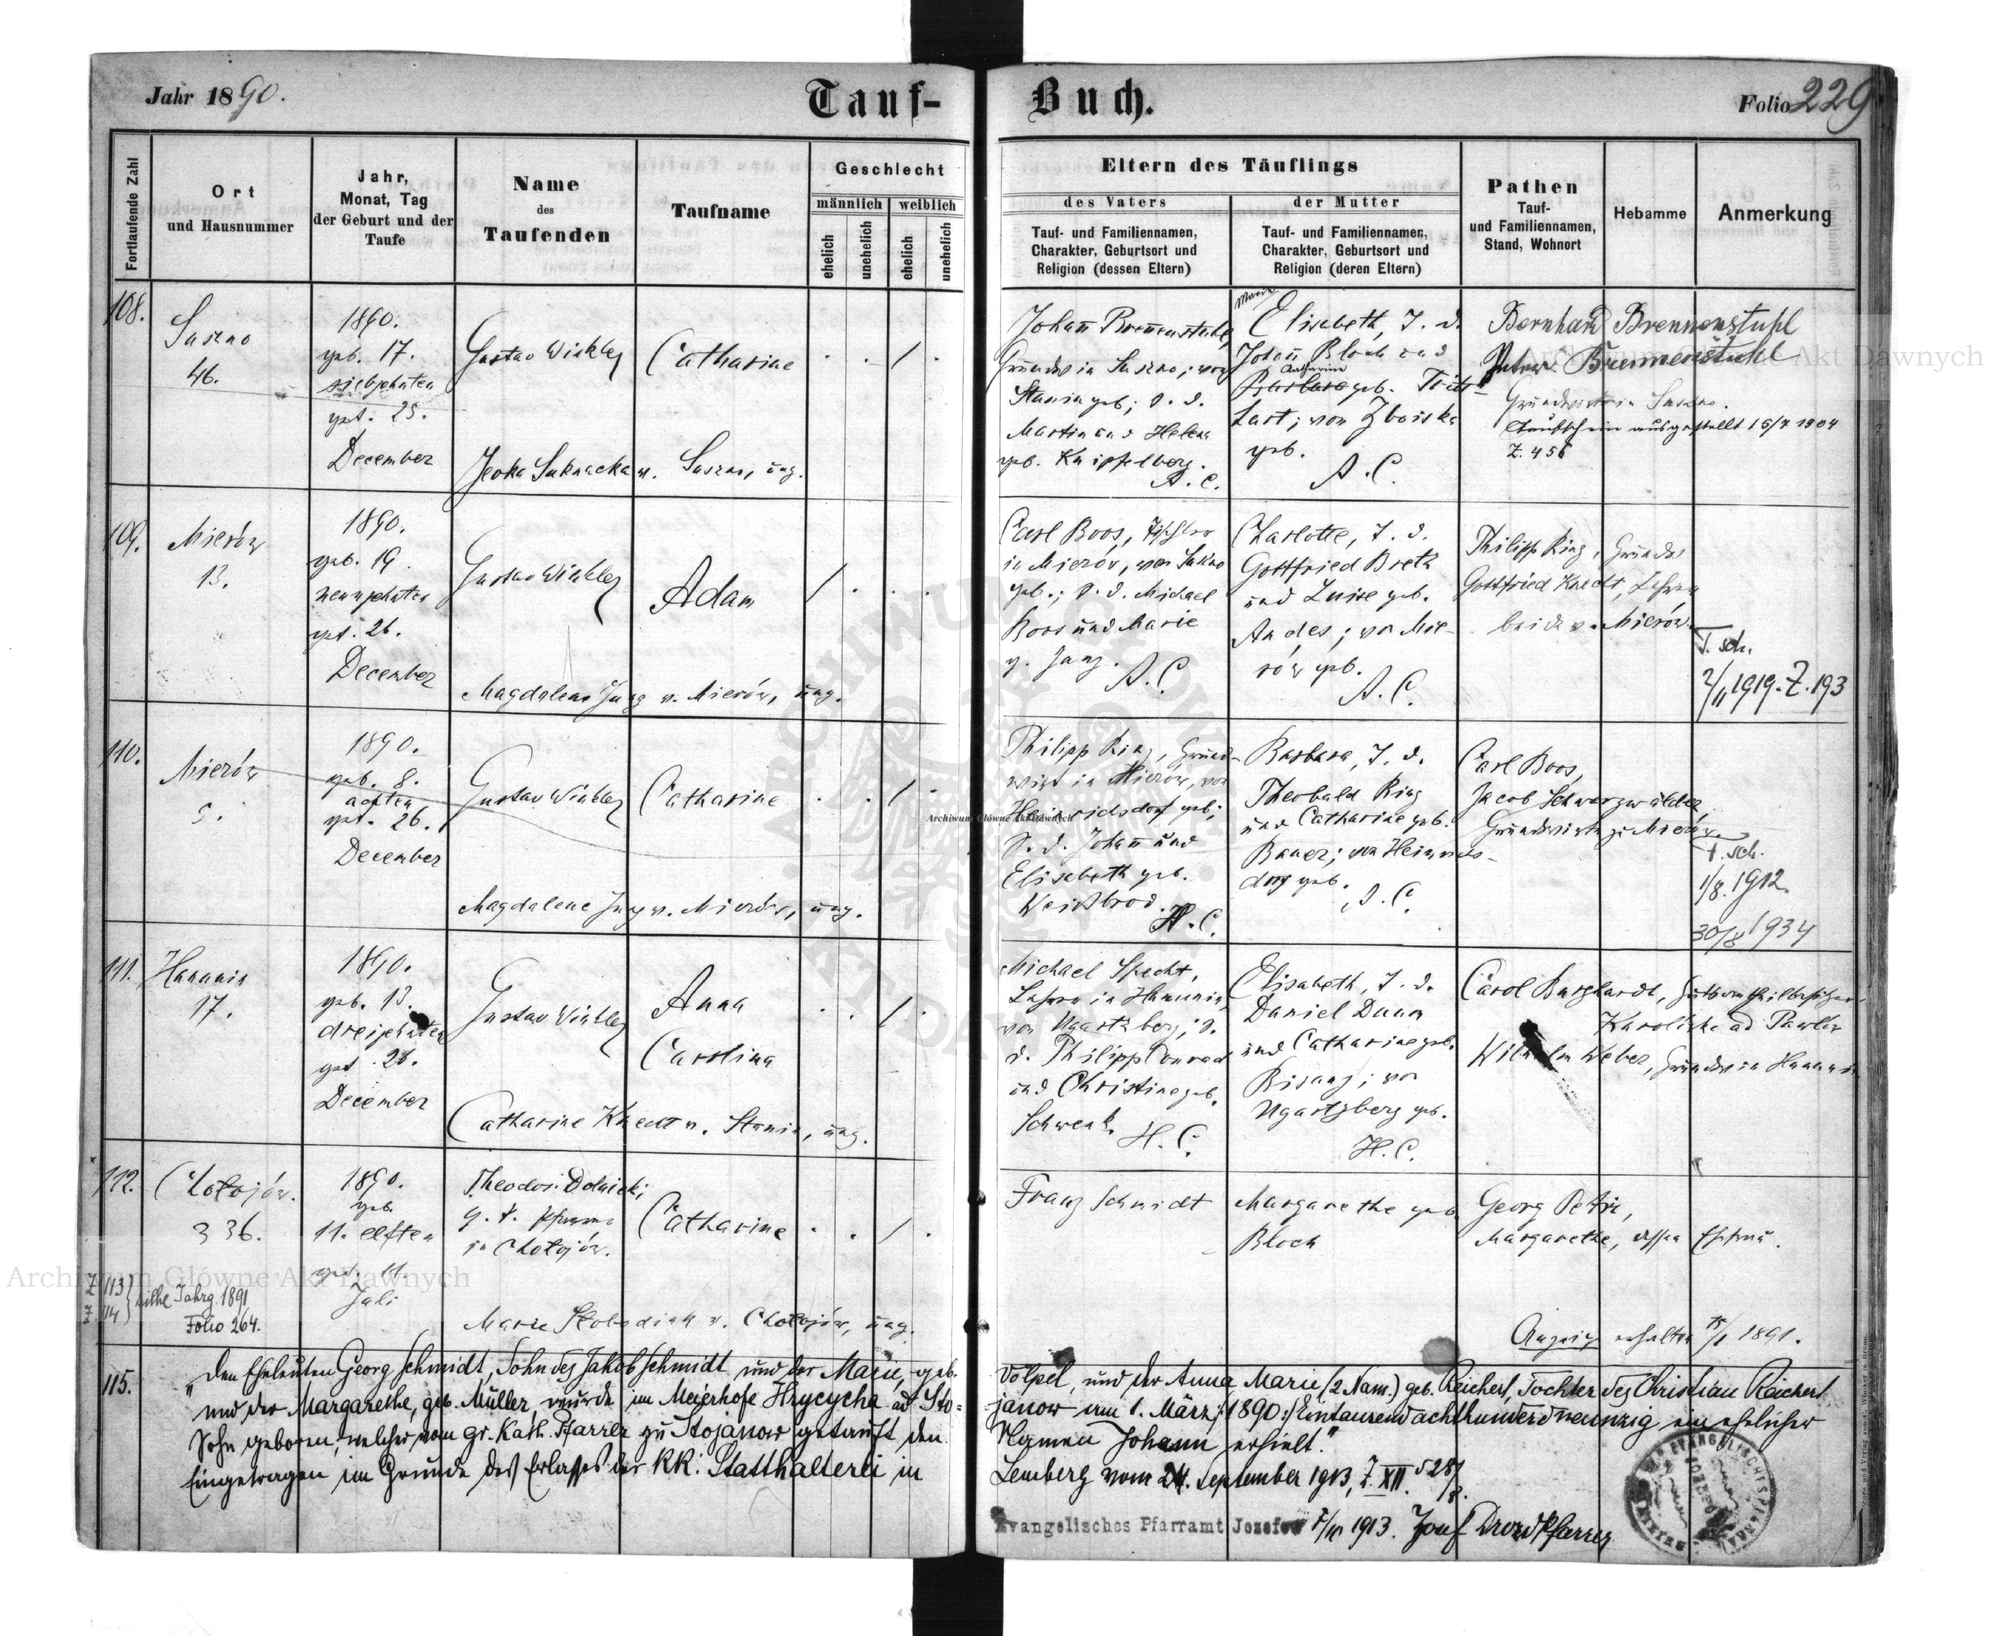 Jahr 1890.
Tauf-
Buch.
Folio 229
Fortlaufende Zahl
Ort
und Hausnummer
Jahr,
Monat, Tag
der Geburt und der
Taufe
Name
des
Taufenden
Taufname
Geschlecht
männlich
weiblich
ehelich
unehelich
ehelich
unehelich
Eltern des Täuflings
des Vaters
der Mutter
Tauf- und Familiennamen,
Charakter, Geburtsort und
Religion (dessen Eltern)
Tauf- und Familiennamen,
Charakter, Geburtsort und
Religion (deren Eltern)
Pathen
Tauf-
und Familiennamen,
Stand, Wohnort
Hebamme
Anmerkung
108.
Suszno
46.
1890.
geb. 17.
siebzehnten
get. 25.
December
Gustav Winkler
Catharine
v. Suszno, ung.
Johann Brennenstuhl,
Grundw in Suszno; von
Stanin geb; S. d.
Martin und Helena
geb. Knipfelberg.
A. C.
Marie
Elisabeth, T. d.
Johann Bloch und
Catharine
Barbara geb. Tritt-
hart; von Zboiska
geb.
A. C.
Bernhard Brennenstuhl
Peter Brennenstuhl
Grundwirte in Suszno.
Taufschein ausgestellt 15/7 1904
Z. 456
109.
Mierów
13.
1890.
geb. 19.
neunzehnten
get. 26.
December
Gustav Winkler
Adam
Magdalene Jung v. Mierów, ung.
Carl Boos,
in Mierów, von
geb.; S. d. Michael
Boos und Marie
g. Jung.
A. C.
Charlotte, T. d.
Gottfried Breth
und Luise geb.
Andes; von Mie-
rów geb.
A. C.
Philipp Ring, Grundw
Gottfried Knecht, Lehrer
beide v. Mierów.
T. sch.
2/11 1919. Z. 193
110.
Mierów
5.
1890.
geb. 8.
achten
get. 26.
December
Gustav Winkler
Catharine
Magdalene Jung v. Mierów, ung.
Philipp Ring, Grund-
wirt in Mierów, von
Heinrichsdorf geb;
S. d. Johann und
Elisabeth geb.
Weißbrod.
H. C.
Barbara, T. d.
Theobald Ring
und Catharine geb.
Bauer; von Heinrichs-
dorf geb.
A. C.
Carl Boos,
Jacob Schwarzwälder
Grundwirte zu Mierów
T. sch.
1/8. 1912.
30/8 1934
111.
Hanunin
17.
1890.
geb. 13.
dreizehnten
get. 28.
December
Gustav Winkler
Anna
Carolina
Catharine Knecht v. Stanin, ung.
Michael Specht,
Lehrer in Hanunin,
von Ugartsberg; S.
d. Philipp Conrad
und Christine geb.
Schwenk.
H. C.
Elisabeth, T. d.
Daniel Daum
und Catharine geb.
Bisanz; von
Ugartsberg geb.
H. C.
Carol Burghardt, Gutsantheilbesitzer
Karolinka ad Pawlów
Wilhelm Weber, Grundw in Hanunin
112.
Chołojów.
336.
1890.
geb.
11. elften
get. 11.
Juli
Theodosi Dolnicki,
g. k. Pfarrer
in Chołojów.
Catharine
Marie v. Chołojów, ung.
Franz Schmidt
Margarethe geb.
Bloch
Georg Petri,
Margarethe, dessen Ehefrau.
Anzeige erhalten 15/1 1891.
Z 113
Z 114
siehe Jahrg. 1891
Folio 264.
115.
"Den Eheleuten Georg Schmidt, Sohn des Jakob Schmidt und der Marie, geb. Völpel, und der Anna Marie (2 Nam.) geb. Reichert, Tochter des Christian Reichert
und der Margarethe, geb. Müller, wurde im Meierhofe Hrycycha ad Sto-janow am 1. März 1890 :/Eintausendachthundertneunzig ein ehelicher
Sohn geboren, welcher vom gr. kath. Pfarrer zu Stojanow getauft den Namen Johann erhielt."
Eingetragen im Grunde des Erlasses der KK. Statthalterei in Lemberg vom 24. September 1913, Z. XII 528/8.
Evangelisches Pfarramt Jozefow 7/10 1913. Josef Drozd Pfarrer
Archiwum Główne Akt Dawnych
Archiwum Główne Akt Dawnych
Archiwum Główne Akt Dawnych